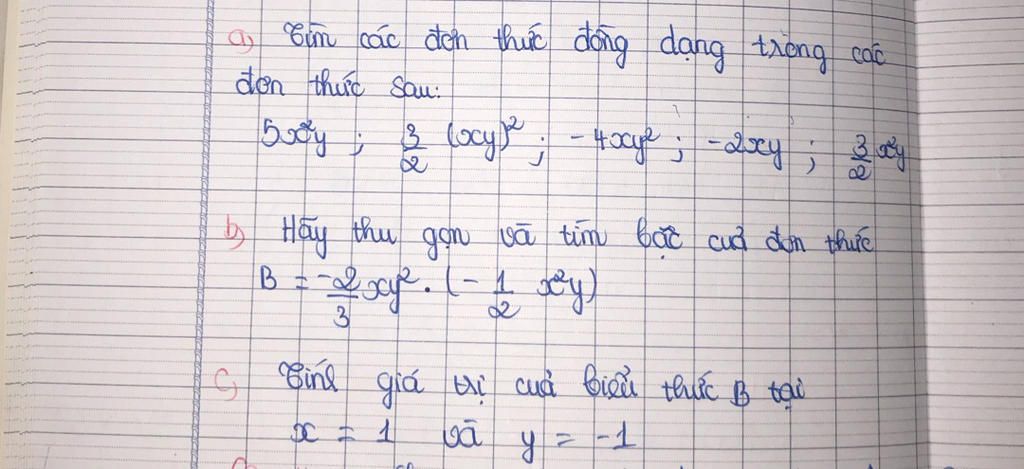 a) Tìm các đơn thức đồng dạng trong các
đơn thức sau:
5x²y ; 3/2 (xy)² ; -4xy² ; -2xy ; 3/2 x²y
b) Hãy thu gọn và tìm bậc của đơn thức
B = -2/3 xy² . (- 1/2 x²y)
c) Tính giá trị của biểu thức B tại
x = 1 và y = -1